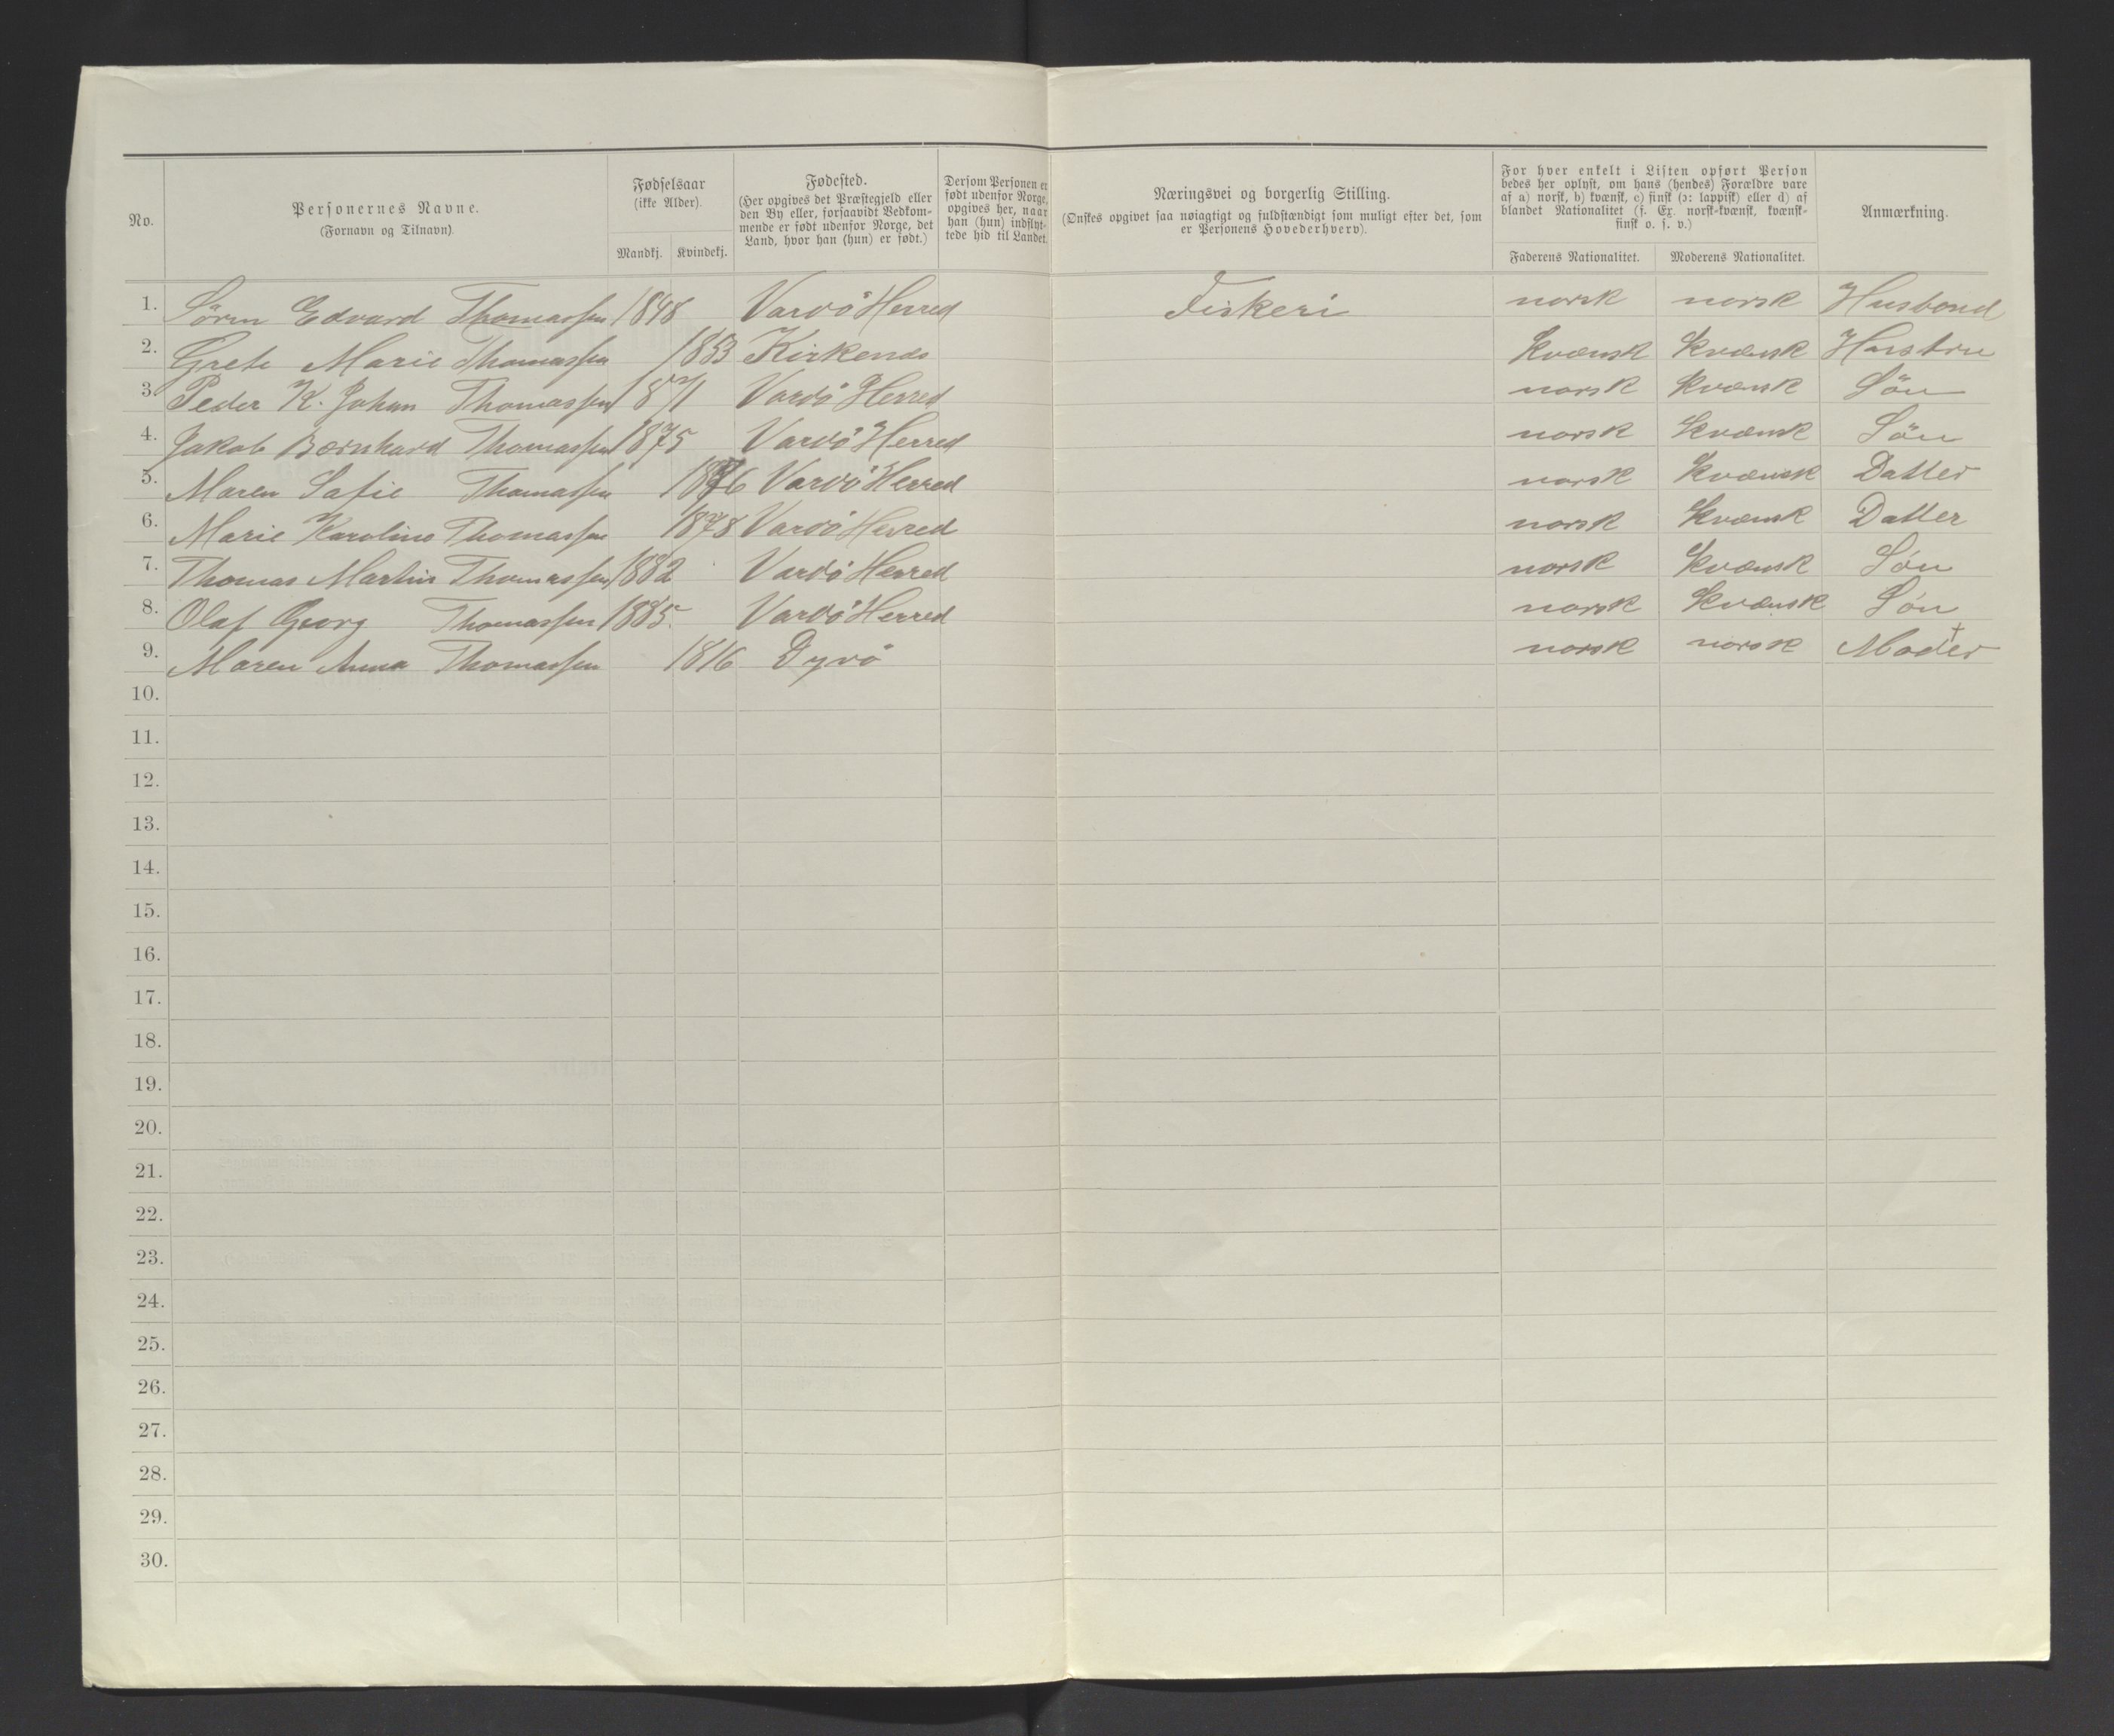 No.
Personernes Navne.
(Fornavn og Tilnavn).
Fødselsaar
(ikke Alder).
Mandkj. Kvindekj.
Fødested.
(Her opgives det Præstegjeld eller
den By eller, forsaavidt Vedkom-
mende er født udenfor Norge, det
Land, hvor han (hun) er født.)
Dersom Personen er
født udenfor Norge,
opgives her, naar
han (hun) indflyt-
tede hid til Landet.
Næringsvei og borgerlig Stilling.
(Ønskes opgivet saa nøiagtigt og fuldstændigt som muligt efter det, som
er Personens Hovederhverv).
For hver enkelt i Listen opført Person
bedes her oplyst, om hans (hendes) Forældre vare
af a) norsk, b) kvænsk, c) finsk (ɔ: lappisk) eller d) af
blandet Nationalitet (f. Ex. norsk-kvænsk, kvænsk-
finsk o. s. v.)
Faderens Nationalitet. Moderens Nationalitet.
Anmærkning.
1. Sören Edvard Thomassen 1848 Vardö Herred Fiskeri norsk norsk Husbond
2. Grete Marie Thomassen 1853 Kirkenæs Kvænsk Kvænsk Hustru
3. Peder K. Johan Thomassen 1871 Vardö Herred norsk Kvænsk Sön
4. Jakob Bernhard Thomassen 1875 Vardö Herred norsk Kvænsk Sön
5. Maren Sofie Thomassen 1876 Vardö Herred norsk Kvænsk Datter
6. Marie Karoline Thomassen 1878 Vardö Herred norsk Kvænsk Datter
7. Thomas Martin Thomassen 1882 Vardö Herred norsk Kvænsk Sön
8. Olaf Georg Thomassen 1885. Vardö Herred norsk Kvænsk Sön
9. Maren Anna Thomassen 1816 Dyrö norsk norsk Moder
10.
11.
12.
13.
14.
15.
16.
17.
18.
19.
20.
21.
22.
23.
24.
25.
26.
27.
28.
29.
30.